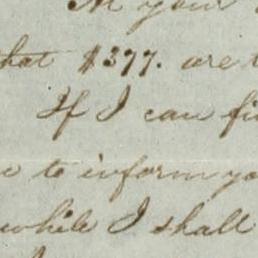 At your
that $377. are t
If I can fi
e to inform yo
while I shall